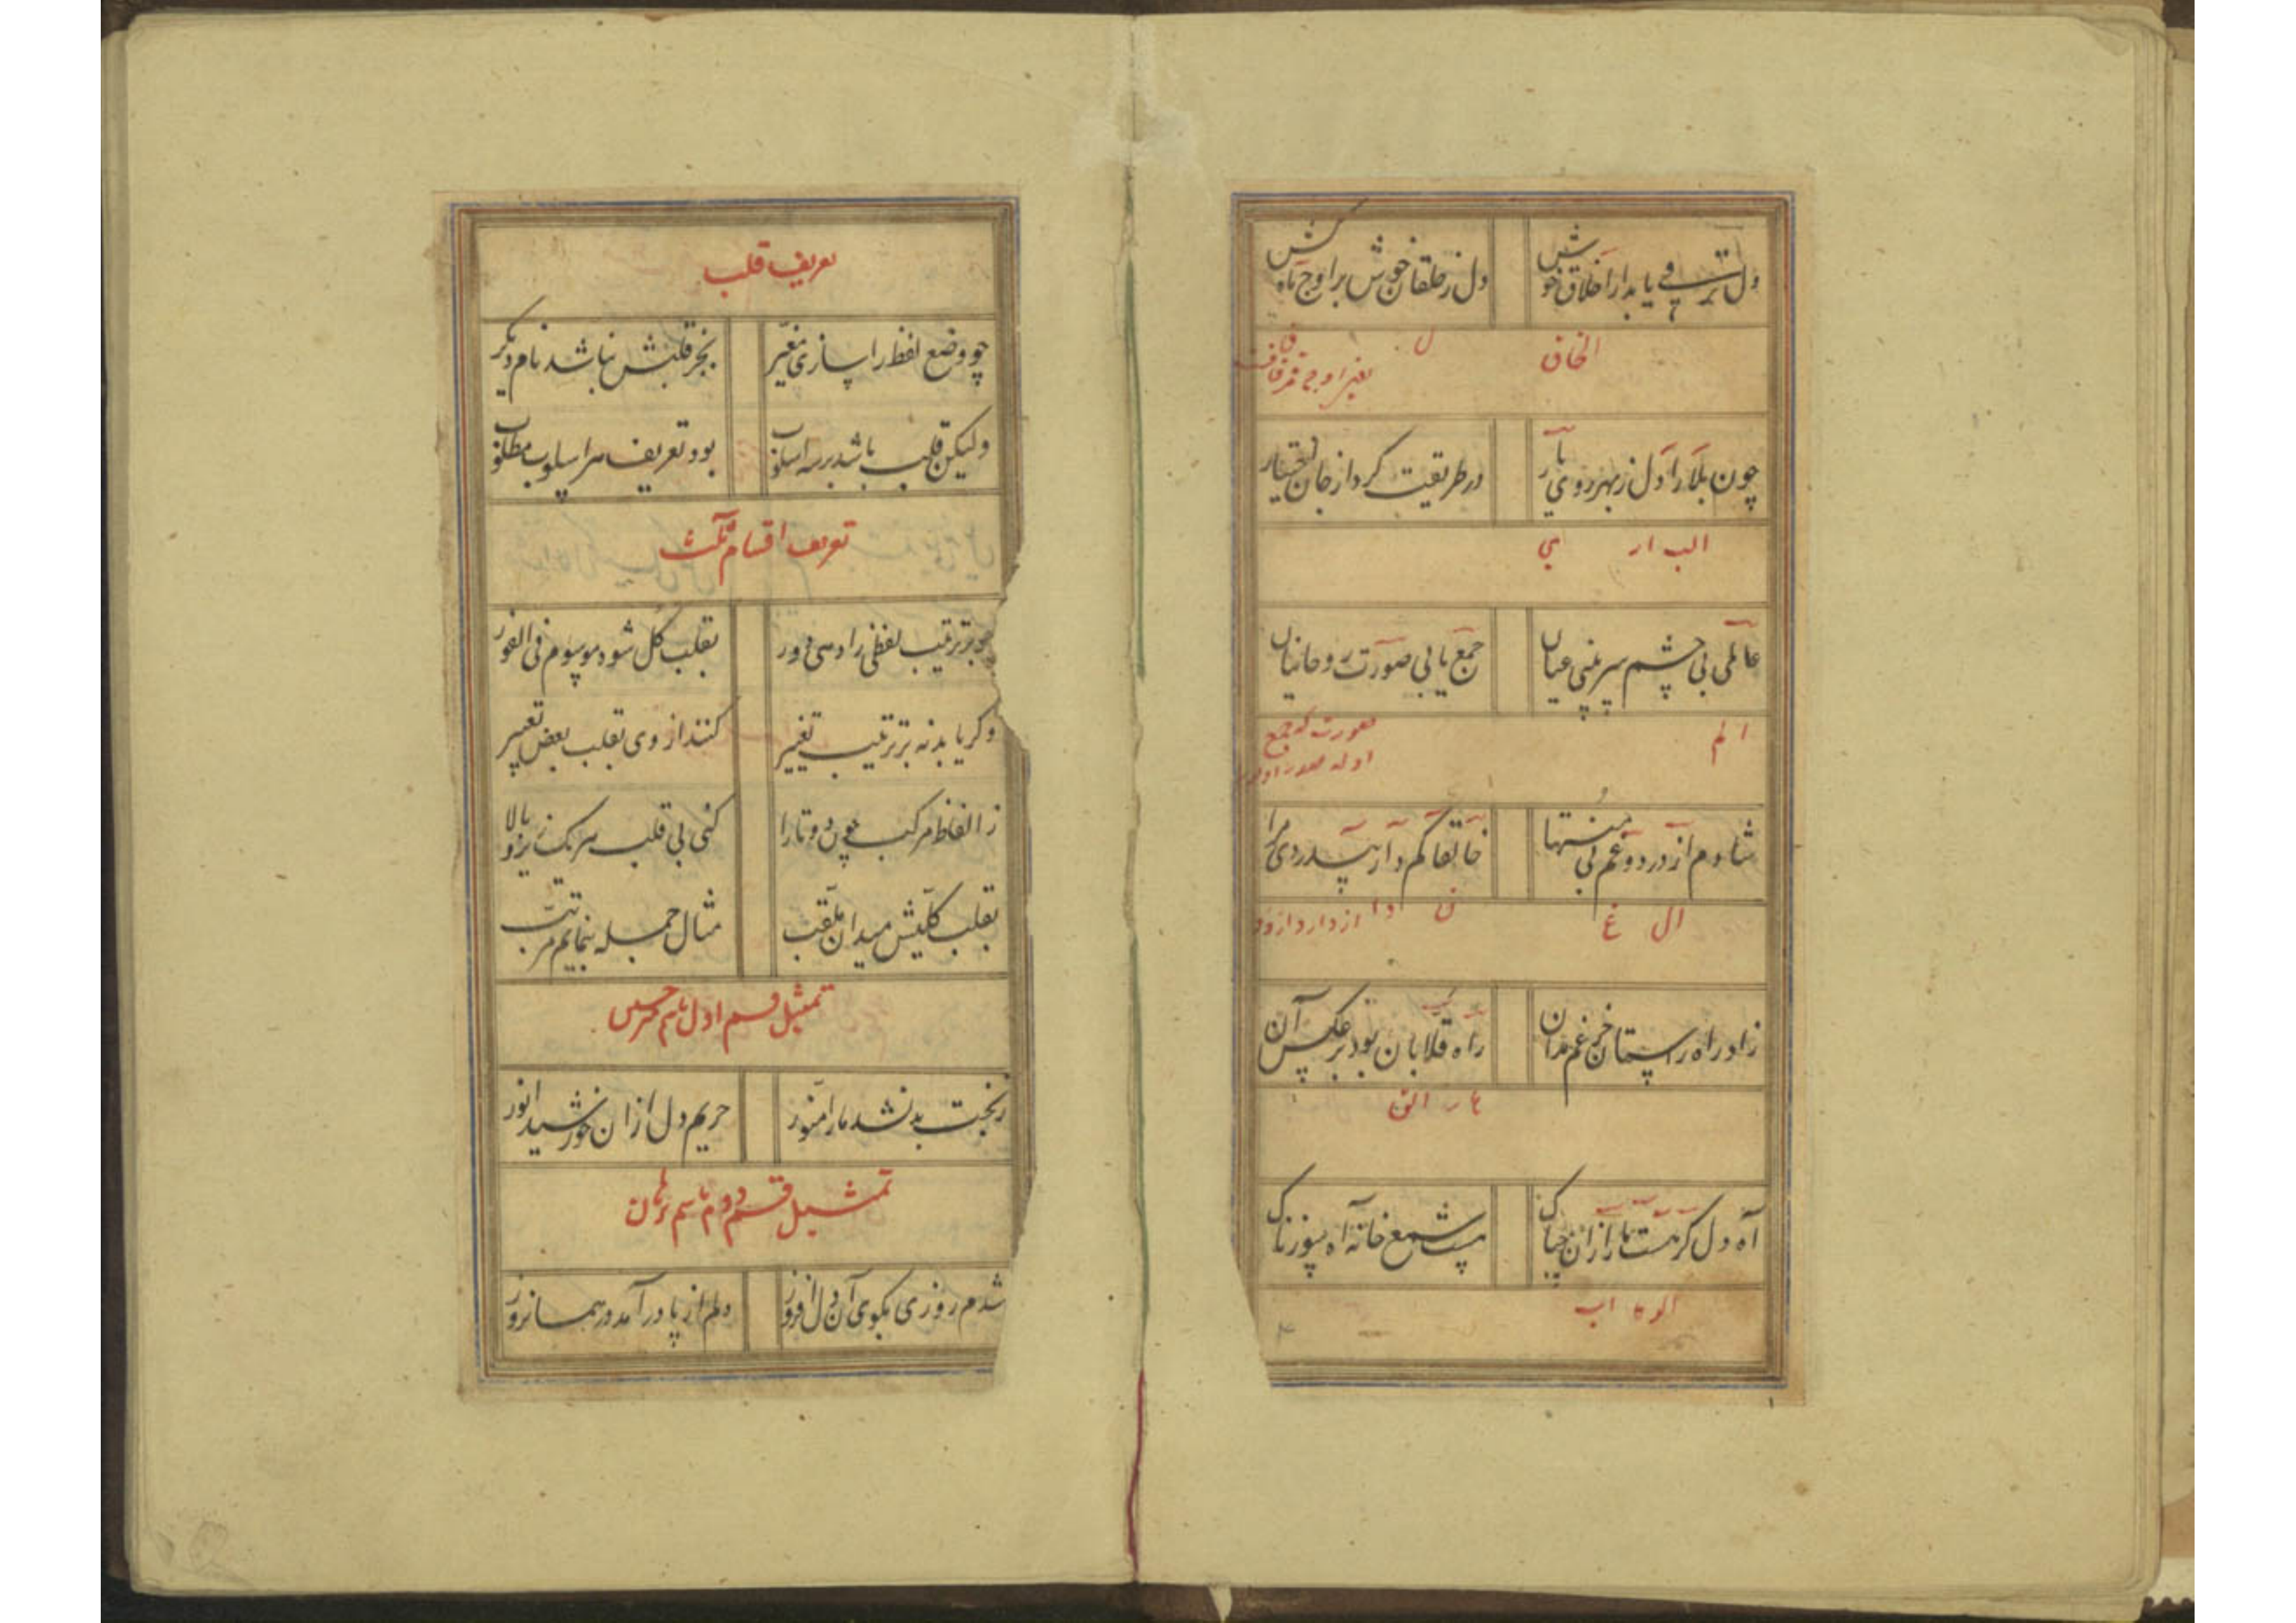 دل ترقی یابد از اخلاق خوش دل ز خلقان خوش براوج ماه کش
الخاق ل ق
چون بلا را دل ز بهر روی یار در طریقت کرد از جان اختیار
الب ار ی
عالمی بی چشم سر بینی عیان جمع یابی صورت روحانیان
الم
شادم از درد و غم بی منتها خالقا کم
ال غ ن
زاد راه راستان جز غم مدان راه قلابان بود برعکس آن
آه دل گر هست ما را زان چه باک هست شمع خانه آه سوزناک
تعریف قلب
چو وضع لفظ را سازی مغیر بجز قلبش نباشد نام دیگر
ولیکن قلب باشد بر سه اسلوب بود تعریف هر اسلوب مطلوب
تعریف اقسام ثلث
چو بر ترتیب لفظی را دهی دور بقلب کل شود موسوم فی الفور
وگر یابد نه بر ترتیب تغییر کنند از وی بقلب بعض تعبیر
ز الفاظ مرکب چون دو تا را کنی بی قلب هر یک زیر و بالا
بقلب کلیش میدان ملقب مثال جمله بنمایم مرتب
تمثیل قسم اول باسم
ز بخت بد نشد ما را منور حریم دل ازان خورشید انور
تمثیل قسم دوم باسم
شدم روزی بکوی آن دل افروز دلم از پا درآمد در همانروز